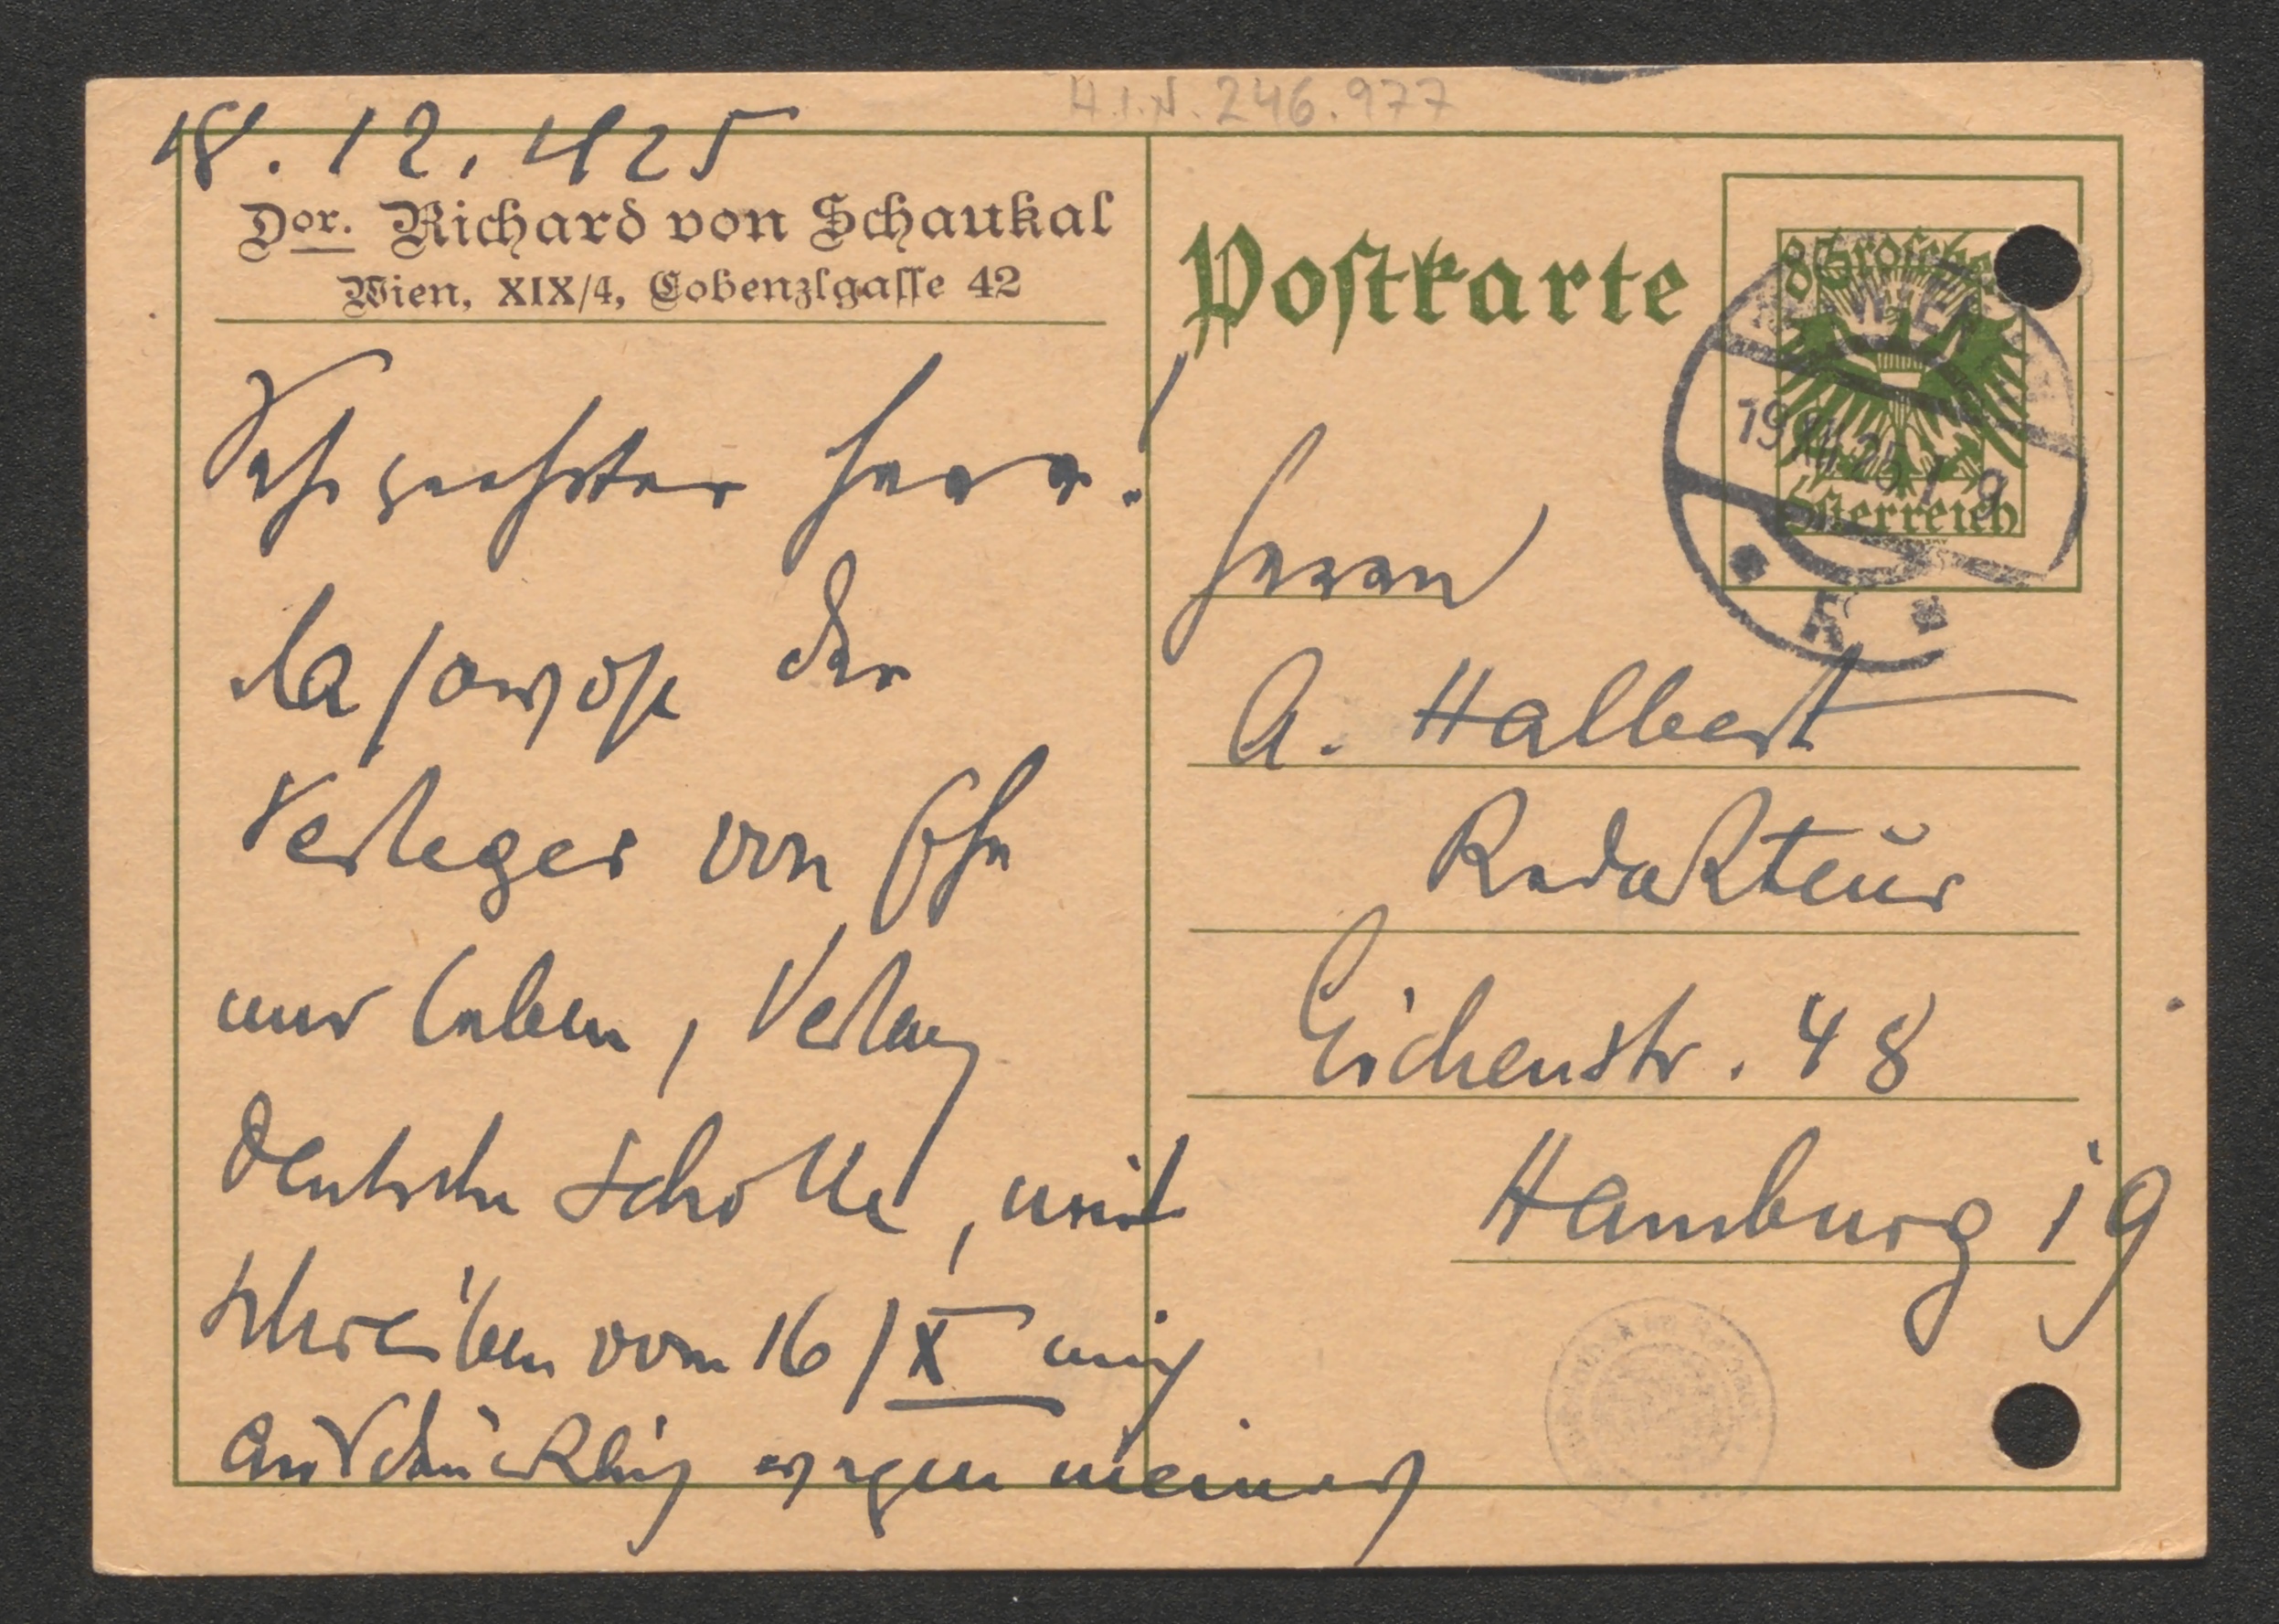 H.I.N. 246.977
18.12.1925
Dor. Richard von Schaukal
Wien, XIX/4, Cobenzlgasse 42
Sehr geehrter Herr!
da sowohl der
Verleger von Ehe
und Leben, Verlag
Deutsche Scholle, mit
Schreiben vom 16/X mich
ausdrücklich wegen meiner
Postkarte
8 Groschen
Österreich
WIEN
19.XII.25
Herrn
A. Halbert
Redakteur
Eichenstr. 48
Hamburg 19